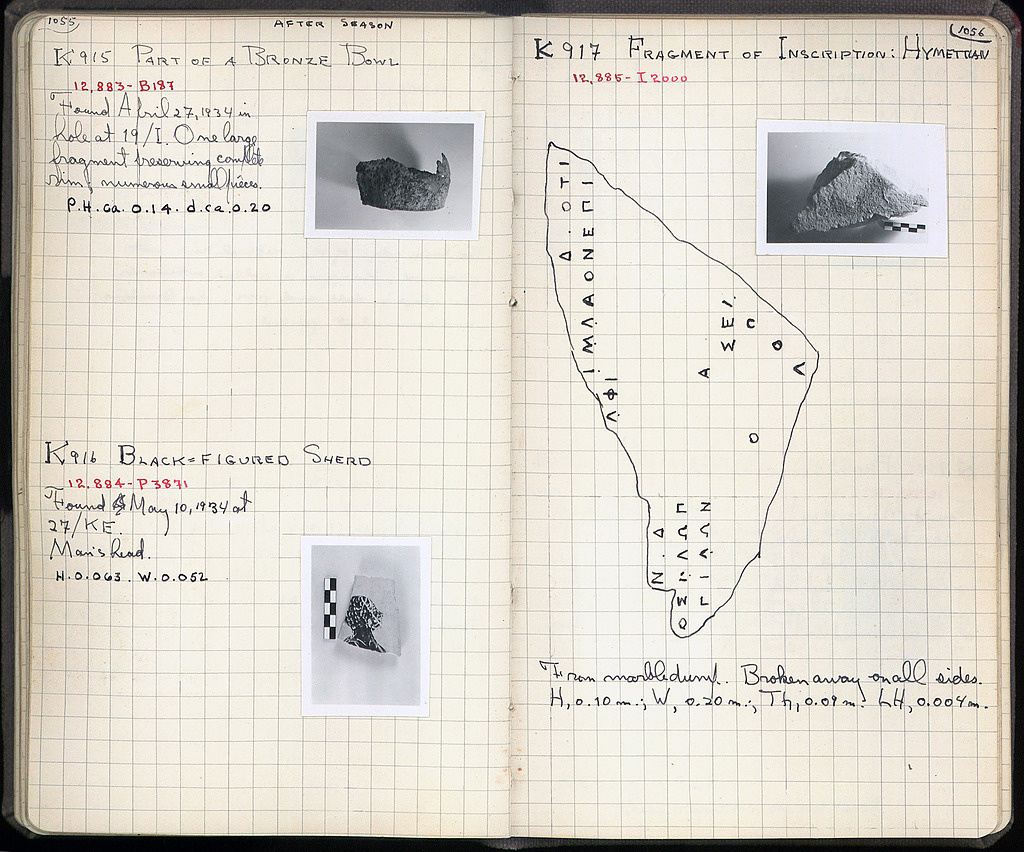 1055
AFTER SEASON
K 915 PART OF A BRONZE BOWL
12.883 - B187
Found April 27, 1934 in
hole at 19/I. One large
fragment preserving complete
rim & numerous small pieces.
P.H. ca. 0.14. d. ca. 0.20
K 916 BLACK=FIGURED SHERD
12.884 - P3871
Found May 10, 1934 at
27/KE.
Man's head.
H. 0.063. W. 0.052
1056
K 917 FRAGMENT OF INSCRIPTION: HYMETTIAN
12.885 - I 2000
From marble dump. Broken away on all sides.
H, 0.10 m.; W, 0.20 m.; Th, 0.09 m. LH, 0.004 m.